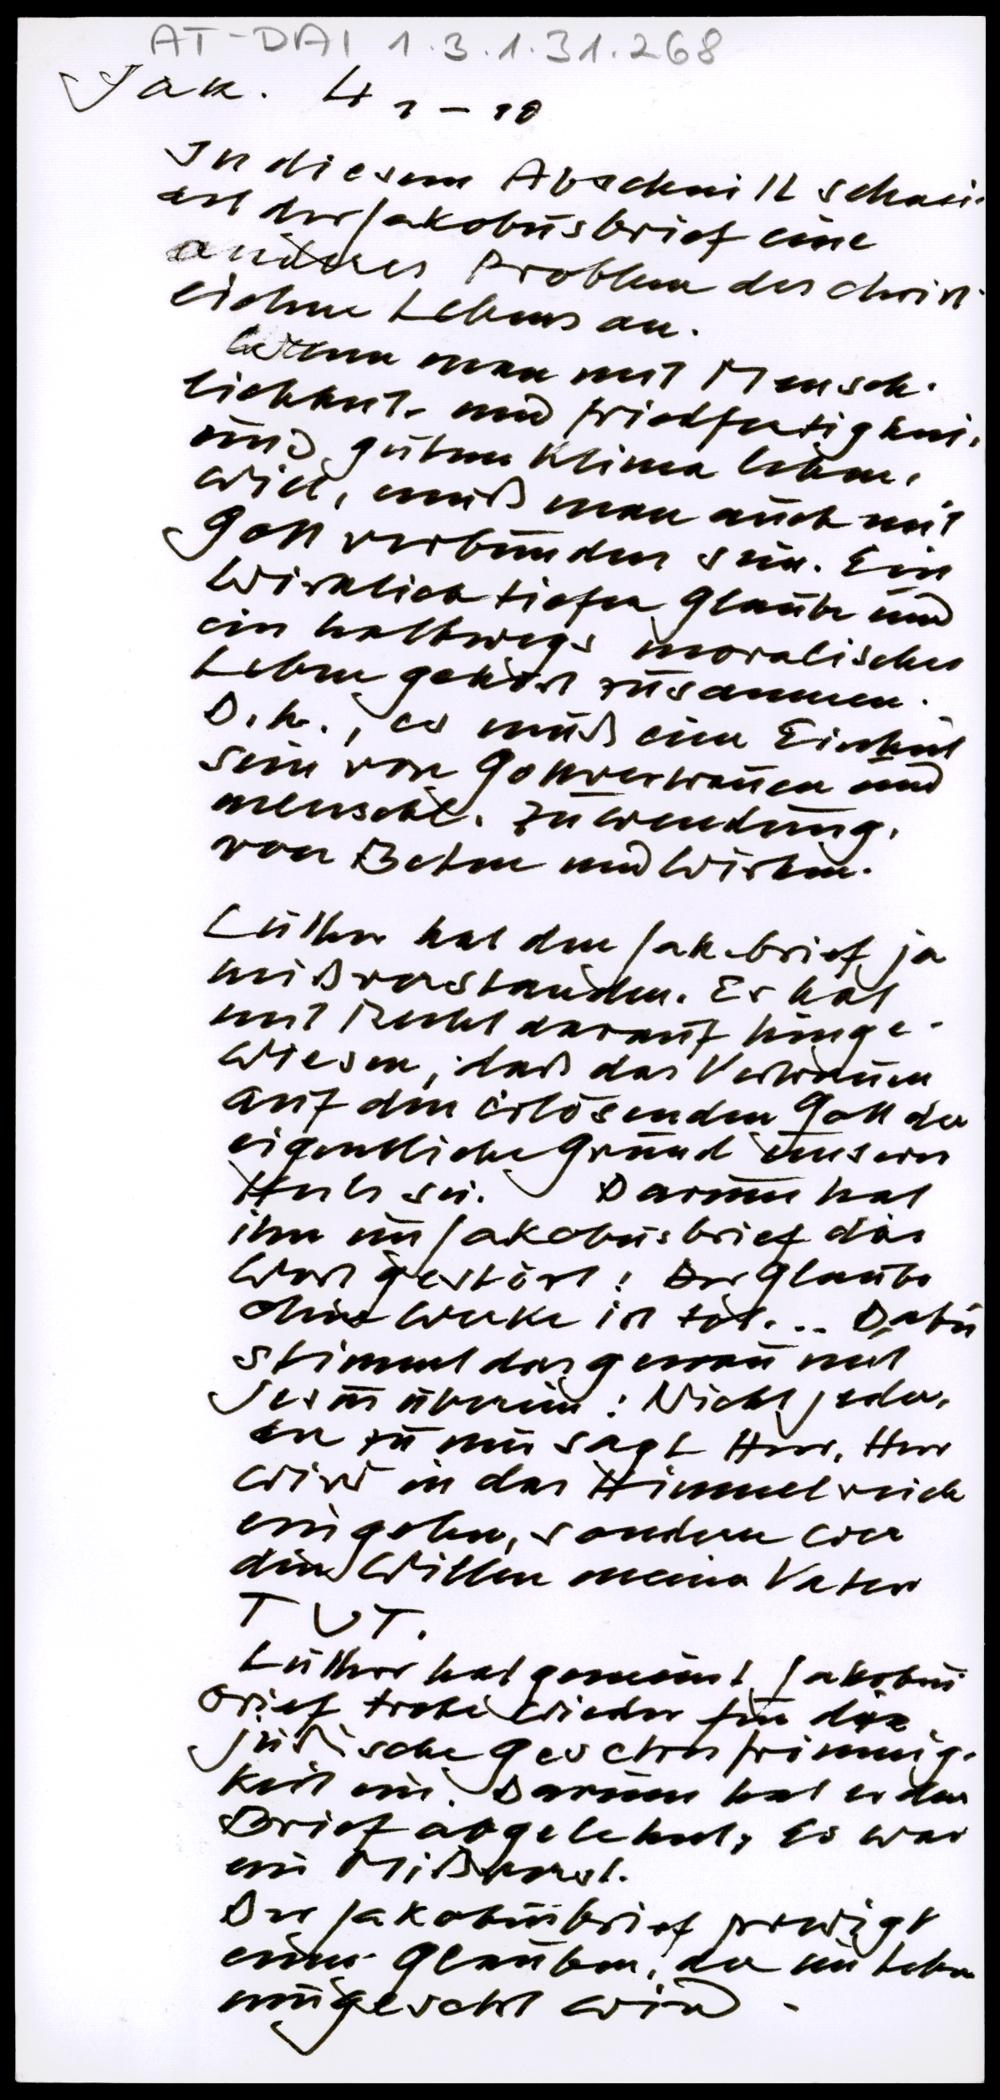 AT-DAI 1.3.1.31.268
Jak. 4 1-10
In diesem Abschnitt schnei-
det der Jakobusbrief eine
anderes Problem des christ-
lichen Lebens an.
Wenn man mit Mensch-
lichkeit und Friedfertigkeit,
und gutem Klima leben,
will, muß man auch mit
Gott verbunden sein. Ein
wirklich tiefer Glaube und
ein halbwegs moralisches
Leben gehört zusammen.
D.h., es muß eine Einheit
sein von Gottvertrauen und
menschl. Zuwendung,
von Beten und Wirken.
Luther hat den Jak.brief ja
mißverstanden. Er hat
mit Recht darauf hinge-
wiesen, daß das Vertrauen
auf den erlösenden Gott der
eigentliche Grund unseres
Heils sei. Darum hat
ihn im Jakobusbrief das
Wort gestört: Der Glaube
ohne Werke ist tot... Dabei
stimmt das genau mit
Jesus überein: Nicht jeder,
der zu mir sagt Herr, Herr
wird in das Himmelreich
eingehen, sondern wer
den Willen meines Vaters
TUT.
Luther hat gemeint Jakobus
brief trete wieder für die
jüdische Gesetzesfrömmig-
keit ein. Darum hat er den
Brief abgelehnt, Es war
ein Mißverst.
Der Jakobusbrief predigt
einen Glauben, der im Leben
umgesetzt wird.